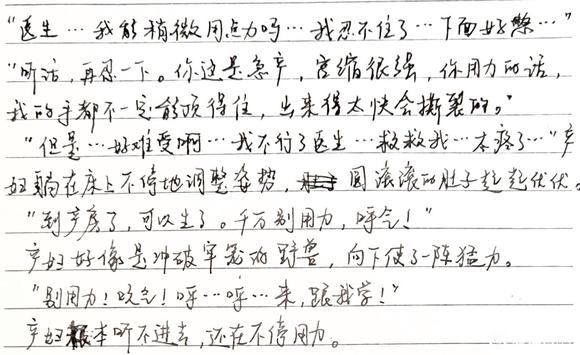 "医生…我能稍微用点力吗…我忍不住了…下面好憋…"
"听话，再忍一下。你这是急产，宫缩很强，你用力的话，
我的手都不一定能顶得住，出来得太快会撕裂的。"
"但是…好难受啊…我不行了医生…救救我…太疼了…"产
妇躺在床上不停地调整姿势，圆滚滚的肚子起起伏伏。
"到产房了，可以生了。千万别用力，呼气！"
产妇好像是冲破牢笼的野兽，向下使了一阵猛力。
"别用力！吸气！呼…呼…来，跟我学！"
产妇根本听不进去，还在不停用力。